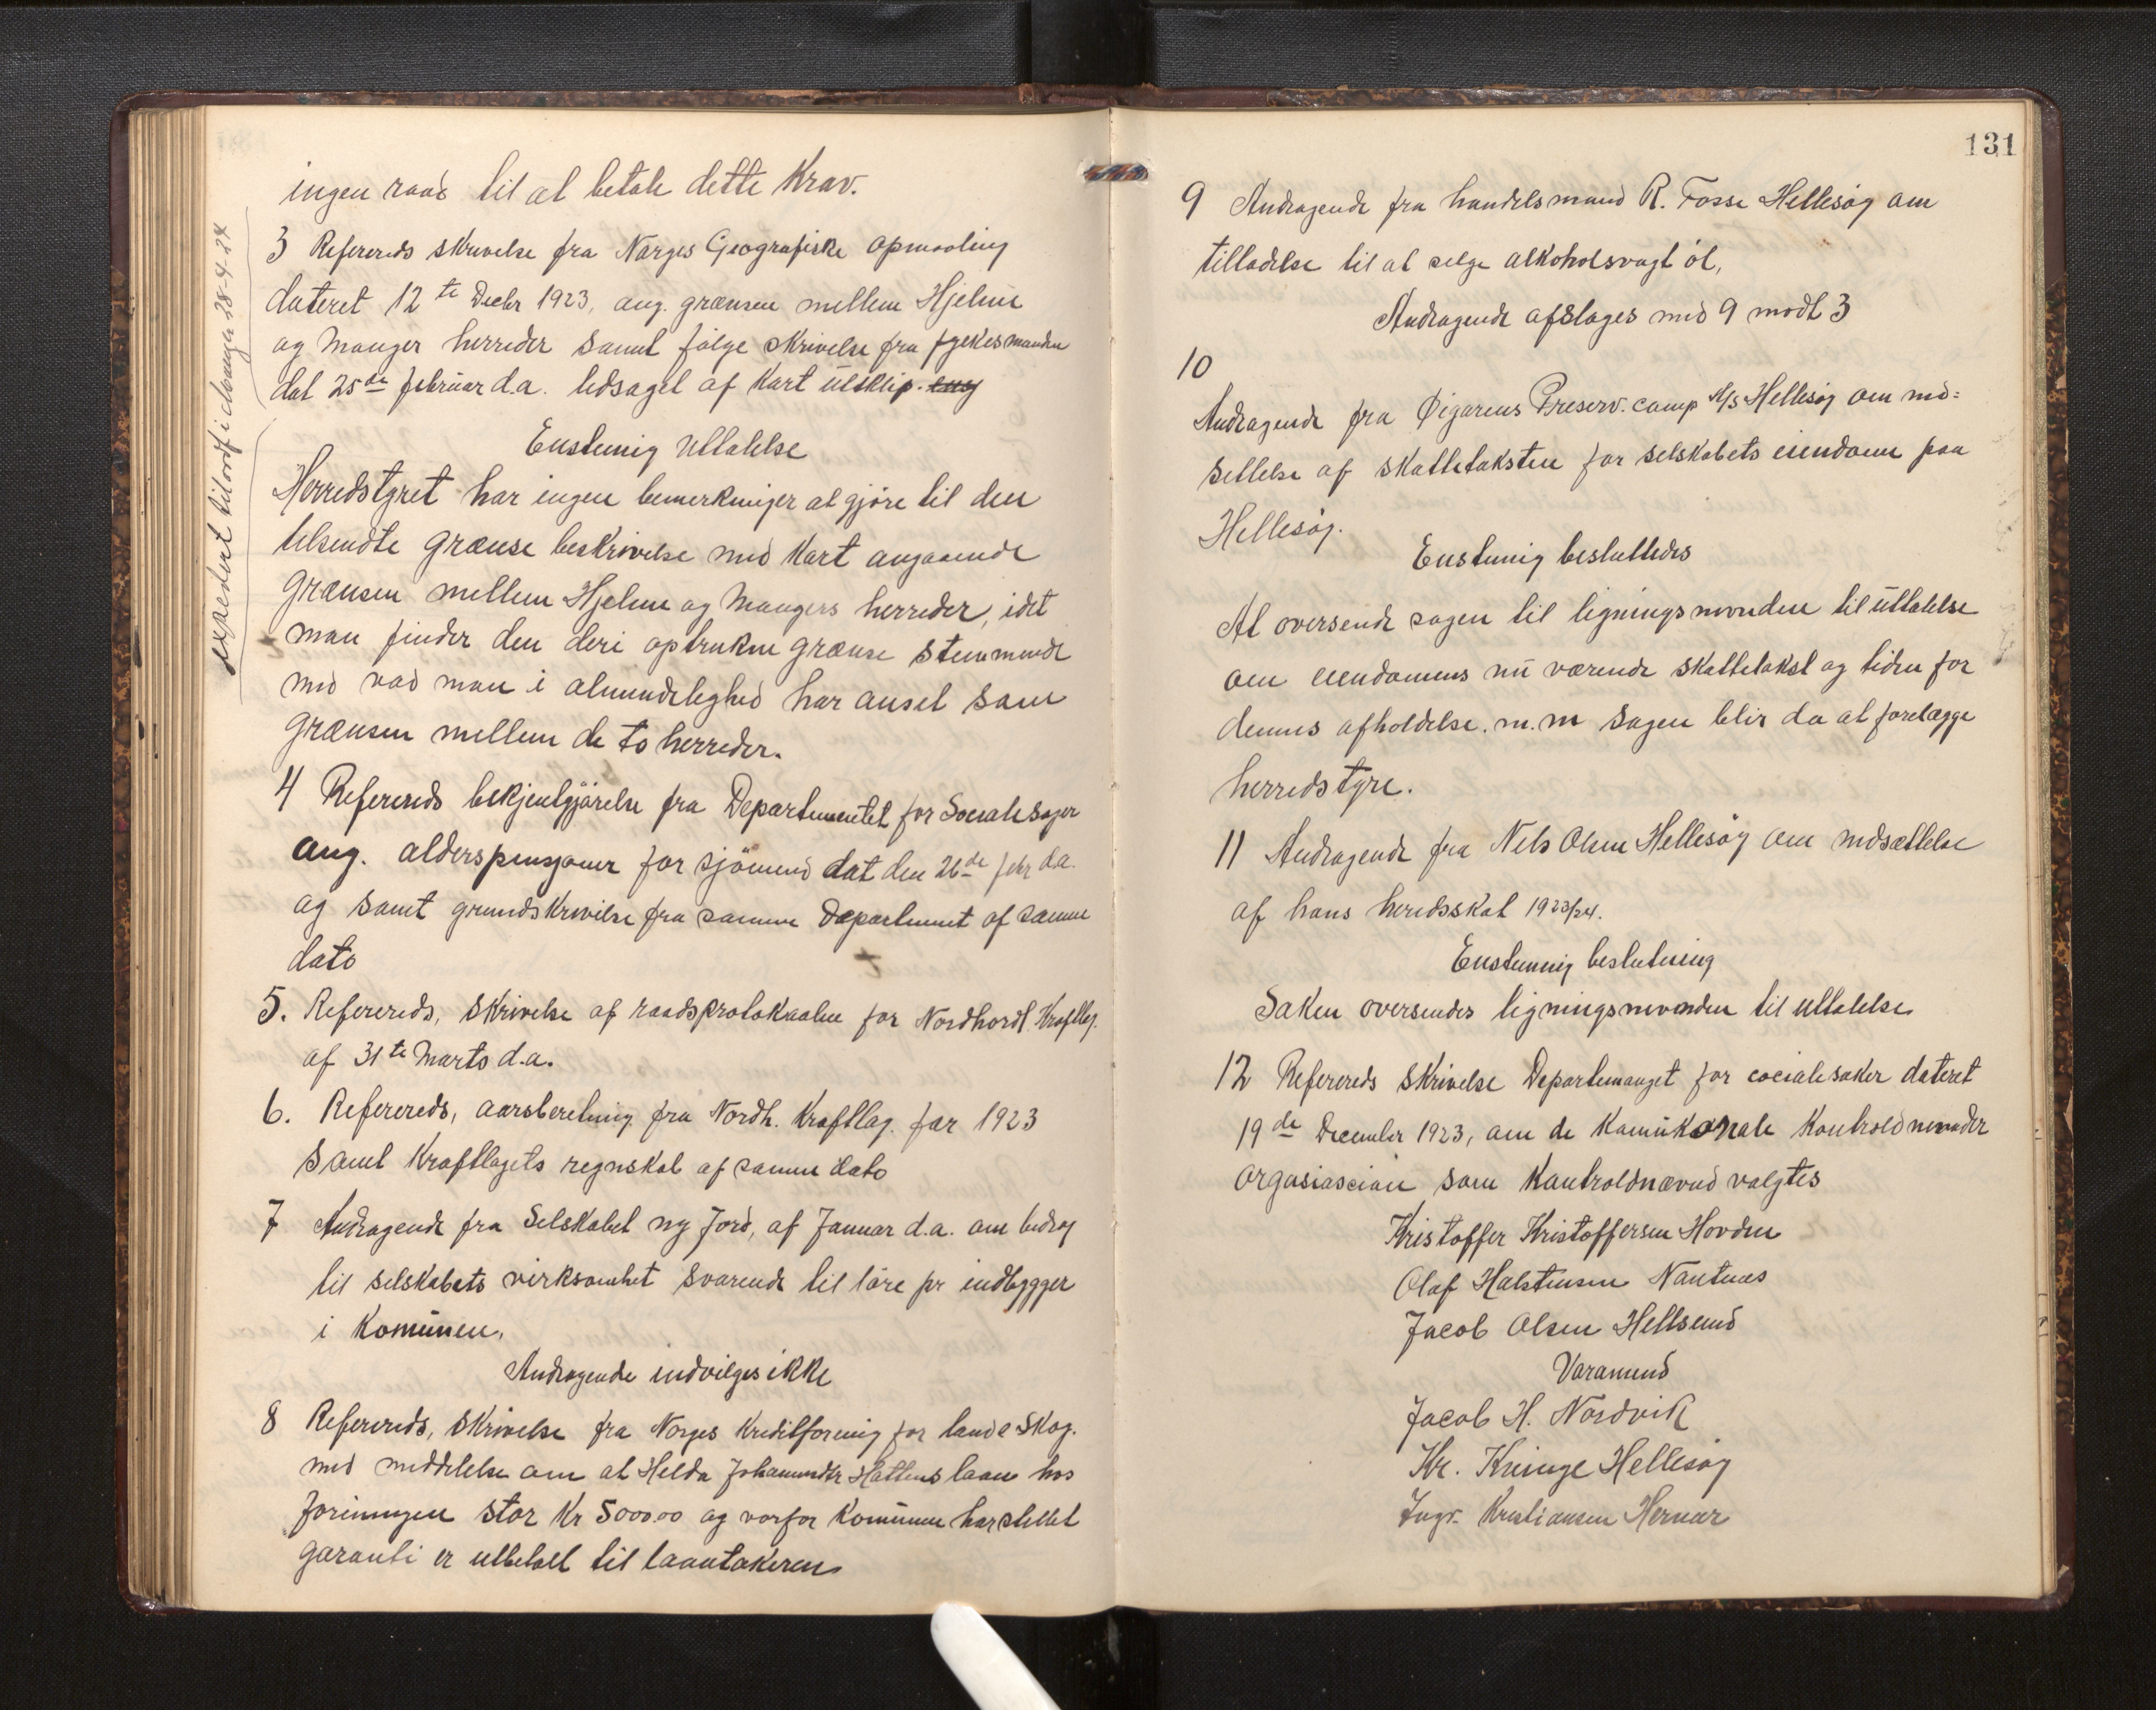 ingen raad til at betale dette Krav.
3 Referereds skrivelse fra Norges Geografiske Opmaaling
dateret 12te Decbr 1923, ang. grænsen mellem Hjelme
og Manger herreder samt følge skrivelse fra fylkesmanden
dat 25de februar d.a. ledsaget af Kart utsklip.
expedert til ordf i Manger 28-4-24
Enstemig Uttalelse
Herredstyret har ingen bemerkninger at gjøre til den
tilsendte Grænse beskrivelse med Kart angaaende
Grænsen mellem Hjelme og Mangers herreder, idet
man finder den deri optrukne grænse stemmende
med vad man i almindeleghed har anset som
Grænsen mellem de to herreder.
4 Referereds bekjentgjørelse fra Departementet for Socialesager
ang. alderspensjoner for sjömend dat den 26de febr da.
og samt grundskrivelse fra samme Departement af samme
dato
5. Referereds, skrivelse af raadsprotokaalen for Nordhordl. Kraftlag.
af 31te Marts d.a.
6. Referereds, aarsberetning fra Nordh. Kraftlag. for 1923
samt Kraftlagets regnskab af samme dato
7 Andragende fra Selskabet ny Jord, af Januar d.a. om bidrag
til selskabets virksomhet svarende til 1øre pr indbygger
i Komünen.
Andragende indvilges ikke
8 Referereds, skrivelse fra Norges Kreditforening for land & Skog.
med meddelelse om at Helda Johannesdtr Hattens laan hos
foreningen stor Kr 5000.00 og vorfor Komünen har stillet
garanti er utbetalt til laantakeren
131
9 Andragende fra handelsmand R. Fosse Hellesøy om
tilladelse til at selge alkoholsvagt øl,
Andragende afslages med 9 modt 3
10
Andragende fra Øigarens Preserv. comp A/S Hellesøy om ned=
settelse af skattetaksten for selskabets eiendom paa
Hellesøy.
Enstemig besluttedes
At oversende sagen til ligningsnevnden til üttalelse
om eiendomens nü værende skattetakst og tiden for
dennes afholdelse. m.m Sagen blir da at forelægge
herredstyre.
11 Andragende fra Nels Olsen Hellesøy om nedsættelse
af hans herredsskat 1923/24.
Enstemmig beslutning
Saken oversendes ligningsnevnden til uttalelse
12 Referereds skrivelse Departemanget for cocialesaker dateret
19de December 1923, om de Komükonale Kontroldnevnder
orgasiascion som Kontroldnævnd valgtes
Kristoffer Kristoffersen Hovden
Olaf Halstensen Nautnes
Jacob Olsen Hellsend
Varamend
Jacob H. Nordvik
Kr. Kringe Hellesøy
Ingv. Kristiansen Hernar